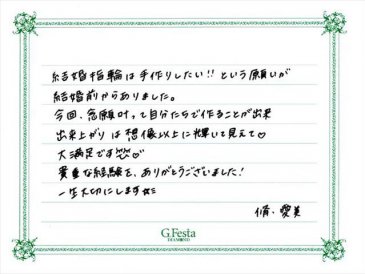 結婚指輪は手作りしたい!! という願いが
結婚前からありました。
今回、念願叶って自分たちで作ることが出来
出来上がりは想像以上に輝いて見えて♡
大満足です♡
貴重な経験を、ありがとうございました!
一生大切にします☆
愛美
G.Festa
DIAMOND